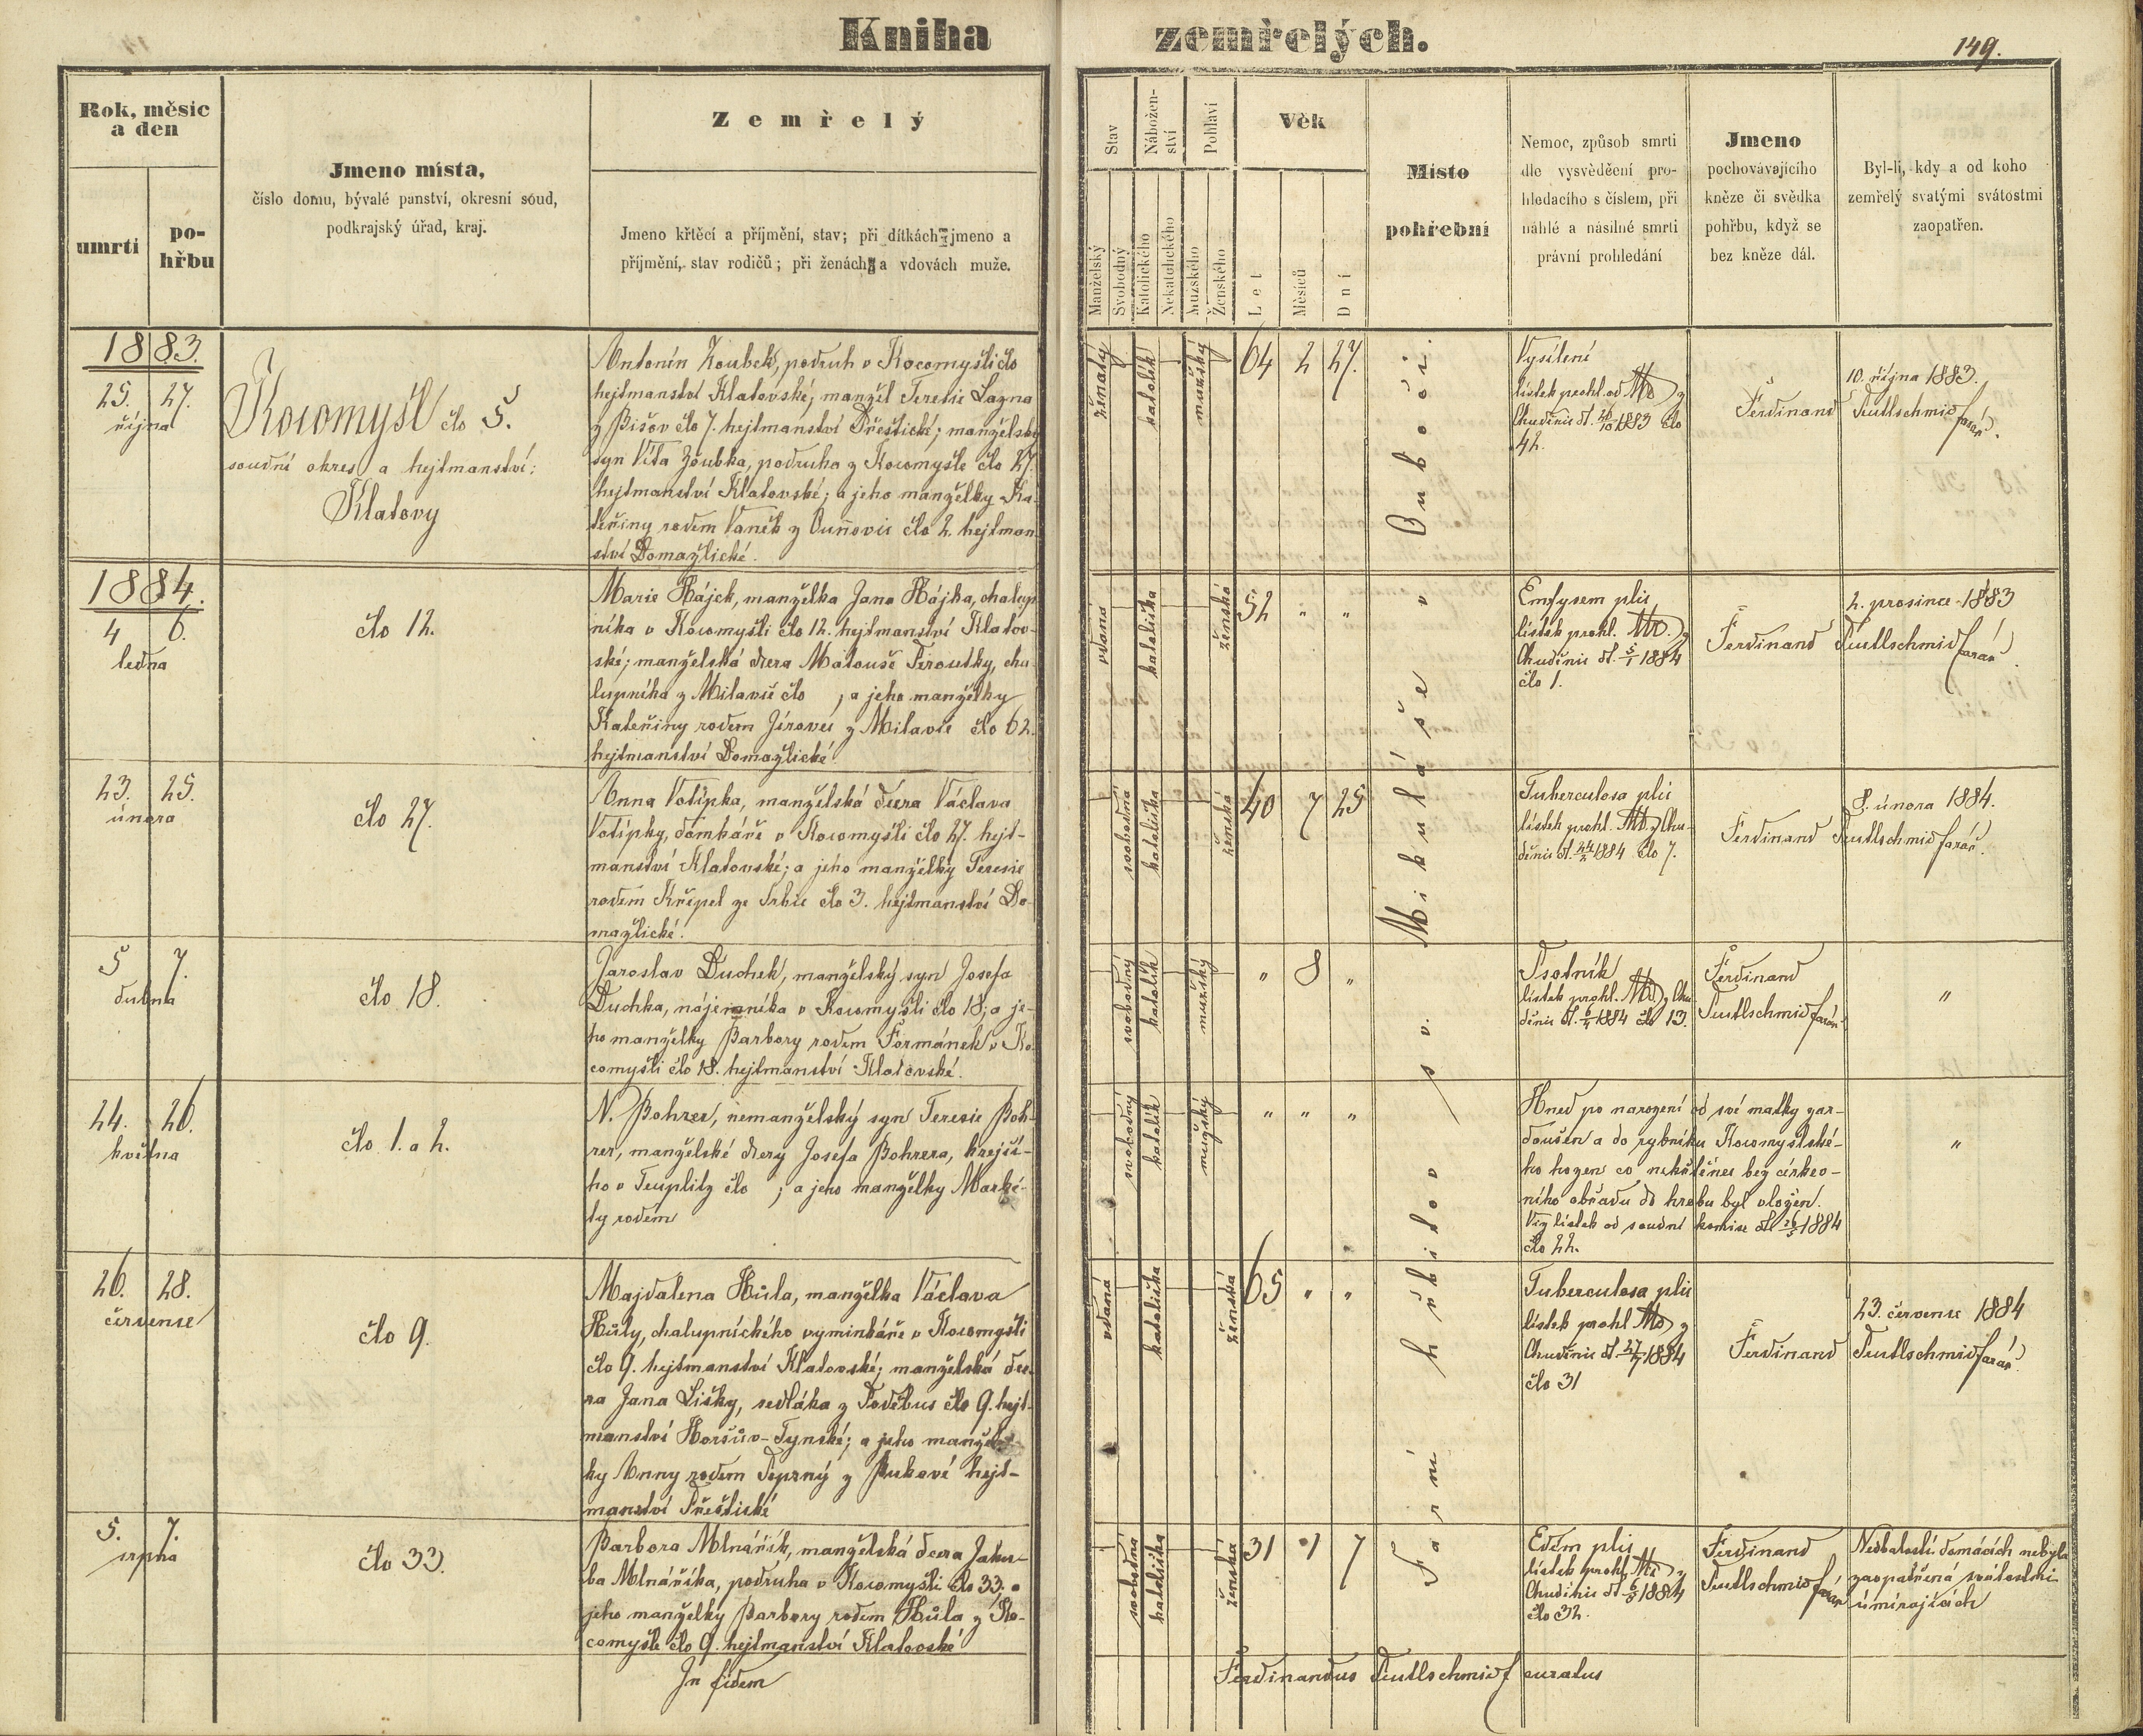 Kniha
zemřelých.
149.
Rok, měsíc
a den
umrtí
po-
hřbu
Jmeno místa,
číslo domu, bývalé panství, okresní soud,
podkrajský úřad, kraj.
Zemřelý
Jmeno křtěcí a příjmění, stav; při dítkách jmeno a
příjmění, stav rodičů; při ženách a vdovách muže.
Stav
Nábožen-
ství
Pohlaví
Věk
Manželský
Svobodný
Katolického
Nekatolického
Mužského
Ženského
Let
Měsíců
Dní
Místo
pohřební
Nemoc, způsob smrti
dle vysvědčení pro-
hledacího s číslem, při
náhlé a násilné smrti
právní prohledání
Jmeno
pochovávajícího
kněze či svědka
pohřbu, když se
bez kněze dál.
Byl-li, kdy a od koho
zemřelý svatými svátostmi
zaopatřen.
1883.
25. 27.
října
Kocomyšl čło 5.
soudní okres a hejtmanství:
Klatovy
Antonín Zoubek, podruh v Kocomyšli čło
hejtmanství Klatovské; manžel Teresie Lazna
z Bišov čło 7. hejtmanství Přeštické; manželský
syn Víta Zoubka, podruha z Kocomyšle čło 27.
hejtmanství Klatovské; a jeho manželky Ka-
teřiny rodem Vaněk z Ouňovic čło 2. hejtman-
ství Domažlické.
ženatý
katolík
mužský
64 2 27.
Vysílení
lístek prohl. od MD z
Chudenic dt. 26/10 1883 čło
42.
Ferdinand Teutlschmid farář.
10. října 1883.
1884.
4 6.
ledna
čło 12.
Marie Hájek, manželka Jana Hájka, chalup-
níka v Kocomyšli čło 12. hejtmanství Klatov-
ské; manželská dcera Matouše Peroutky, cha-
lupníka z Milavče čło ; a jeho manželky
Kateřiny rodem Jírovec z Milavče čło 62.
hejtmanství Domažlické
vdaná
katolička
ženská
52 " "
Emfysem plic
lístek prohl. MD. z
Chudenic dt. 5/1 1884
čło 1.
Ferdinand Teutlschmid farář.
2. prosince 1883
23. 25.
února
čło 27.
Anna Votípka, manželská dcera Václava
Votípky, domkáře v Kocomyšli čło 27. hejt-
manství Klatovské; a jeho manželky Teresie
rodem Křípel ze Srbic čło 3. hejtmanství Do-
mažlické.
svobodná
katolička
ženská
40 7 25
Tuberculosa plic
lístek prohl. MD z Chu-
denic dt. 24/2 1884 čło 7.
Ferdinand Teutlschmid farář.
8. února 1884.
5 7.
dubna
čło 18.
Jaroslav Duchek, manželský syn Josefa
Duchka, nájemníka v Kocomyšli čło 18; a je-
ho manželky Barbory rodem Formánek v Ko-
comyšli čło 18. hejtmanství Klatovské.
svobodný
katolík
mužský
" 8 "
Psotník
lístek prohl. MD z Chu-
denic dt. 6/4 1884 čło 13.
Ferdinand
Teutlschmid farář.
"
24. 26.
května
čło 1. a 2.
N. Bohrer, nemanželský syn Teresie Boh-
rer, manželské dcery Josefa Bohrera, krejčí-
ho v Teuplitz čło ; a jeho manželky Marké-
ty rodem
svobodný
katolík
mužský
" " "
Hned po narození od své matky zar-
doušen a do rybníku Kocomyšlské-
ho hozen co nekřtěnec bez církev-
ního obřadu do hrobu byl vložen.
Viz lístek od soudní komise dt 26/5 1884
čło 22.
"
26. 28.
července
čło 9.
Majdalena Hůla, manželka Václava
Hůly, chalupnického výminkáře v Kocomyšli
čło 9. hejtmanství Klatovské; manželská dce-
ra Jana Lišky, sedláka z Poděbus čło 9. hejt-
manství Horšův-Tynské; a jeho manžel-
ky Anny rodem Teprný z Bukové hejt-
manství Přeštické
vdaná
katolička
ženská
65 " "
Tuberculosa plic
lístek prohl MD z
Chudenic dt 27/7 1884
čło 31
Ferdinand Teutlschmid farář.
23. července 1884
5. 7.
srpna
čło 33.
Barbora Mlnářík, manželská dcera Jaku-
ba Mlnáříka, podruha v Kocomyšli čło 33; a
jeho manželky Barbory rodem Hůla z Ko-
comyšle čło 9. hejtmanství Klatovské
svobodná
katolička
ženská
31 1 7
Edem plic
lístek prohl. MD z
Chudenic dt 6/8 1884
čło 32.
Ferdinand
Teutlschmid farář
Nedbalostí domácích nebyla
zaopatřená svátostmi
umírajících
Farní hřbitov sv. Mikuláše v Ouboči.
In fidem
Ferdinandus Teutlschmid curatus